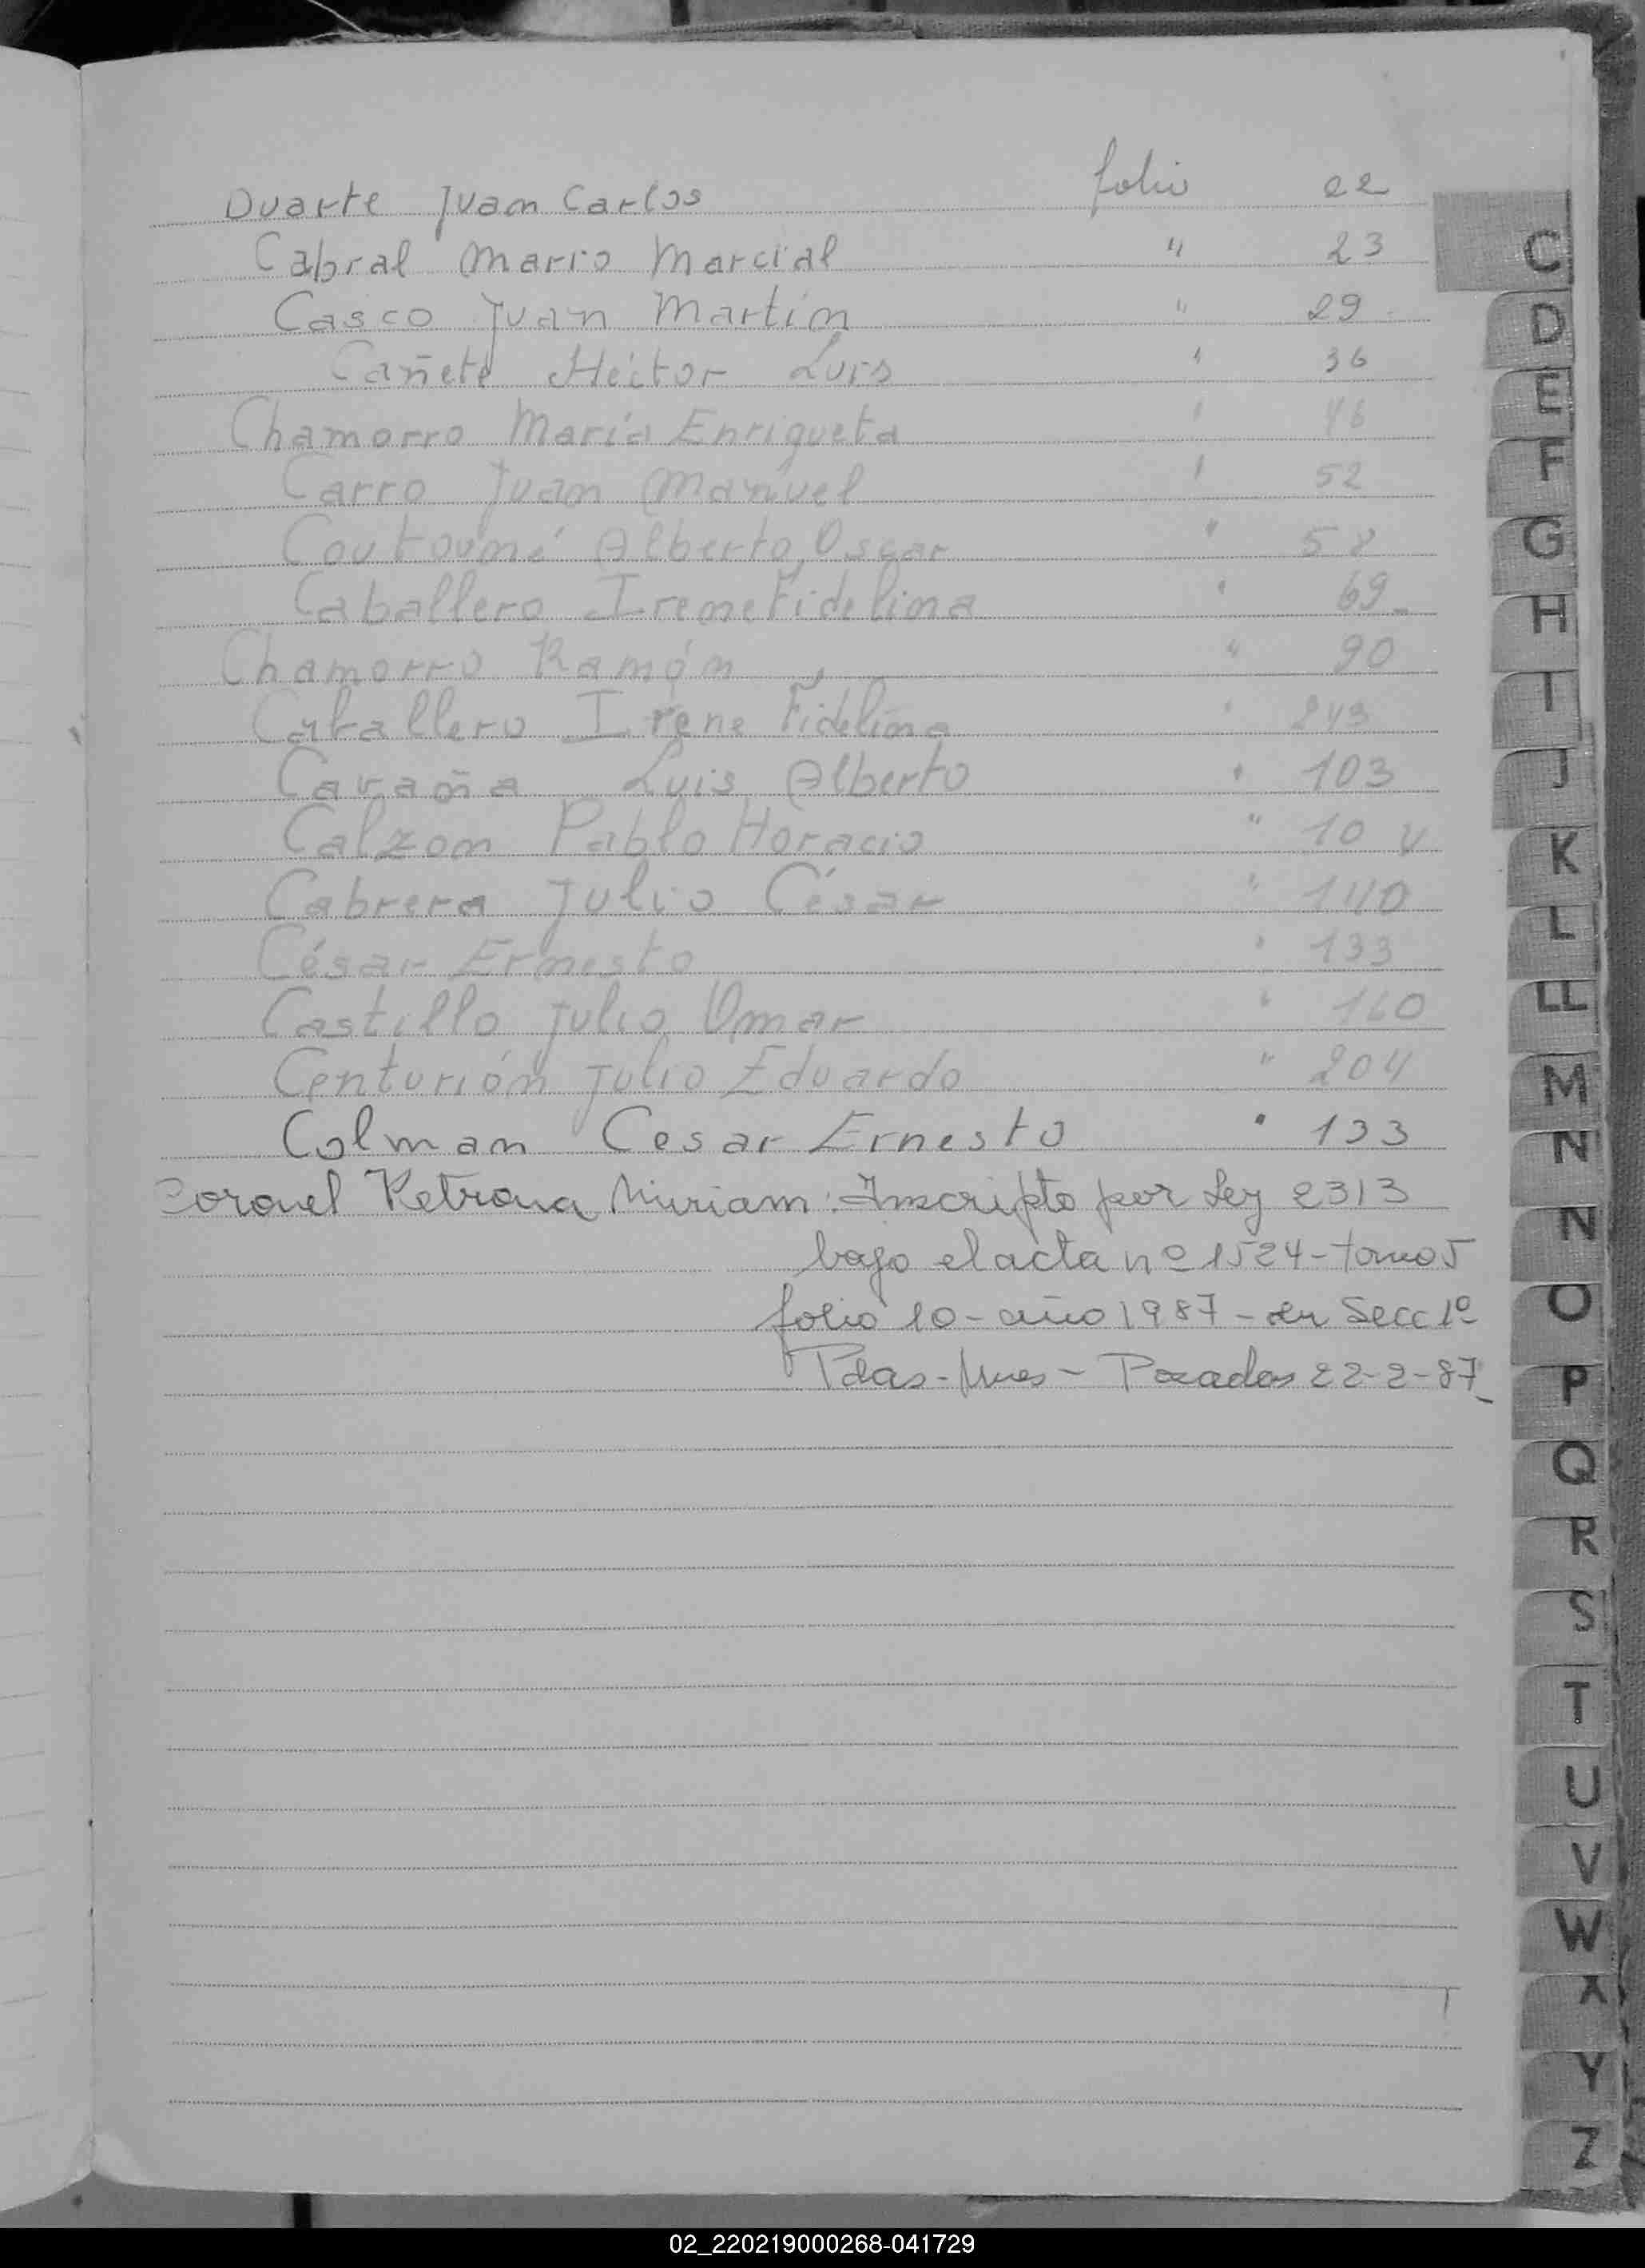 Duarte Juan Carlos folio 22
Cabral Mario Marcial " 23
Casco Juan Martín " 29
Cañete Héctor Luis " 36
Chamorro María Enriqueta " 46
Carro Juan Manuel " 52
Alberto Oscar " 58
Caballero Irene Fidelina " 69-
Chamorro Ramón " 90
Caballero Irene Fidelina " 243
Luis Alberto " 103
Calzon Pablo Horacio " 10
Cabrera Julio César " 140
César Ernesto " 133
Castillo Julio Omar " 160
Centurión Julio Eduardo " 204
Colman Cesar Ernesto " 133
Coronel Petrona Miriam: Inscripto por Ley 2313
bajo el acta nº 1524 - tomo 5
folio 10 - año 1987 - en Secc 1º
Pdas - Mnes - Posadas 22-2-87-
C
D
E
F
G
H
I
J
K
L
LL
M
N
N
O
P
Q
R
S
T
U
V
W
X
Y
Z
02_220219000268-041729